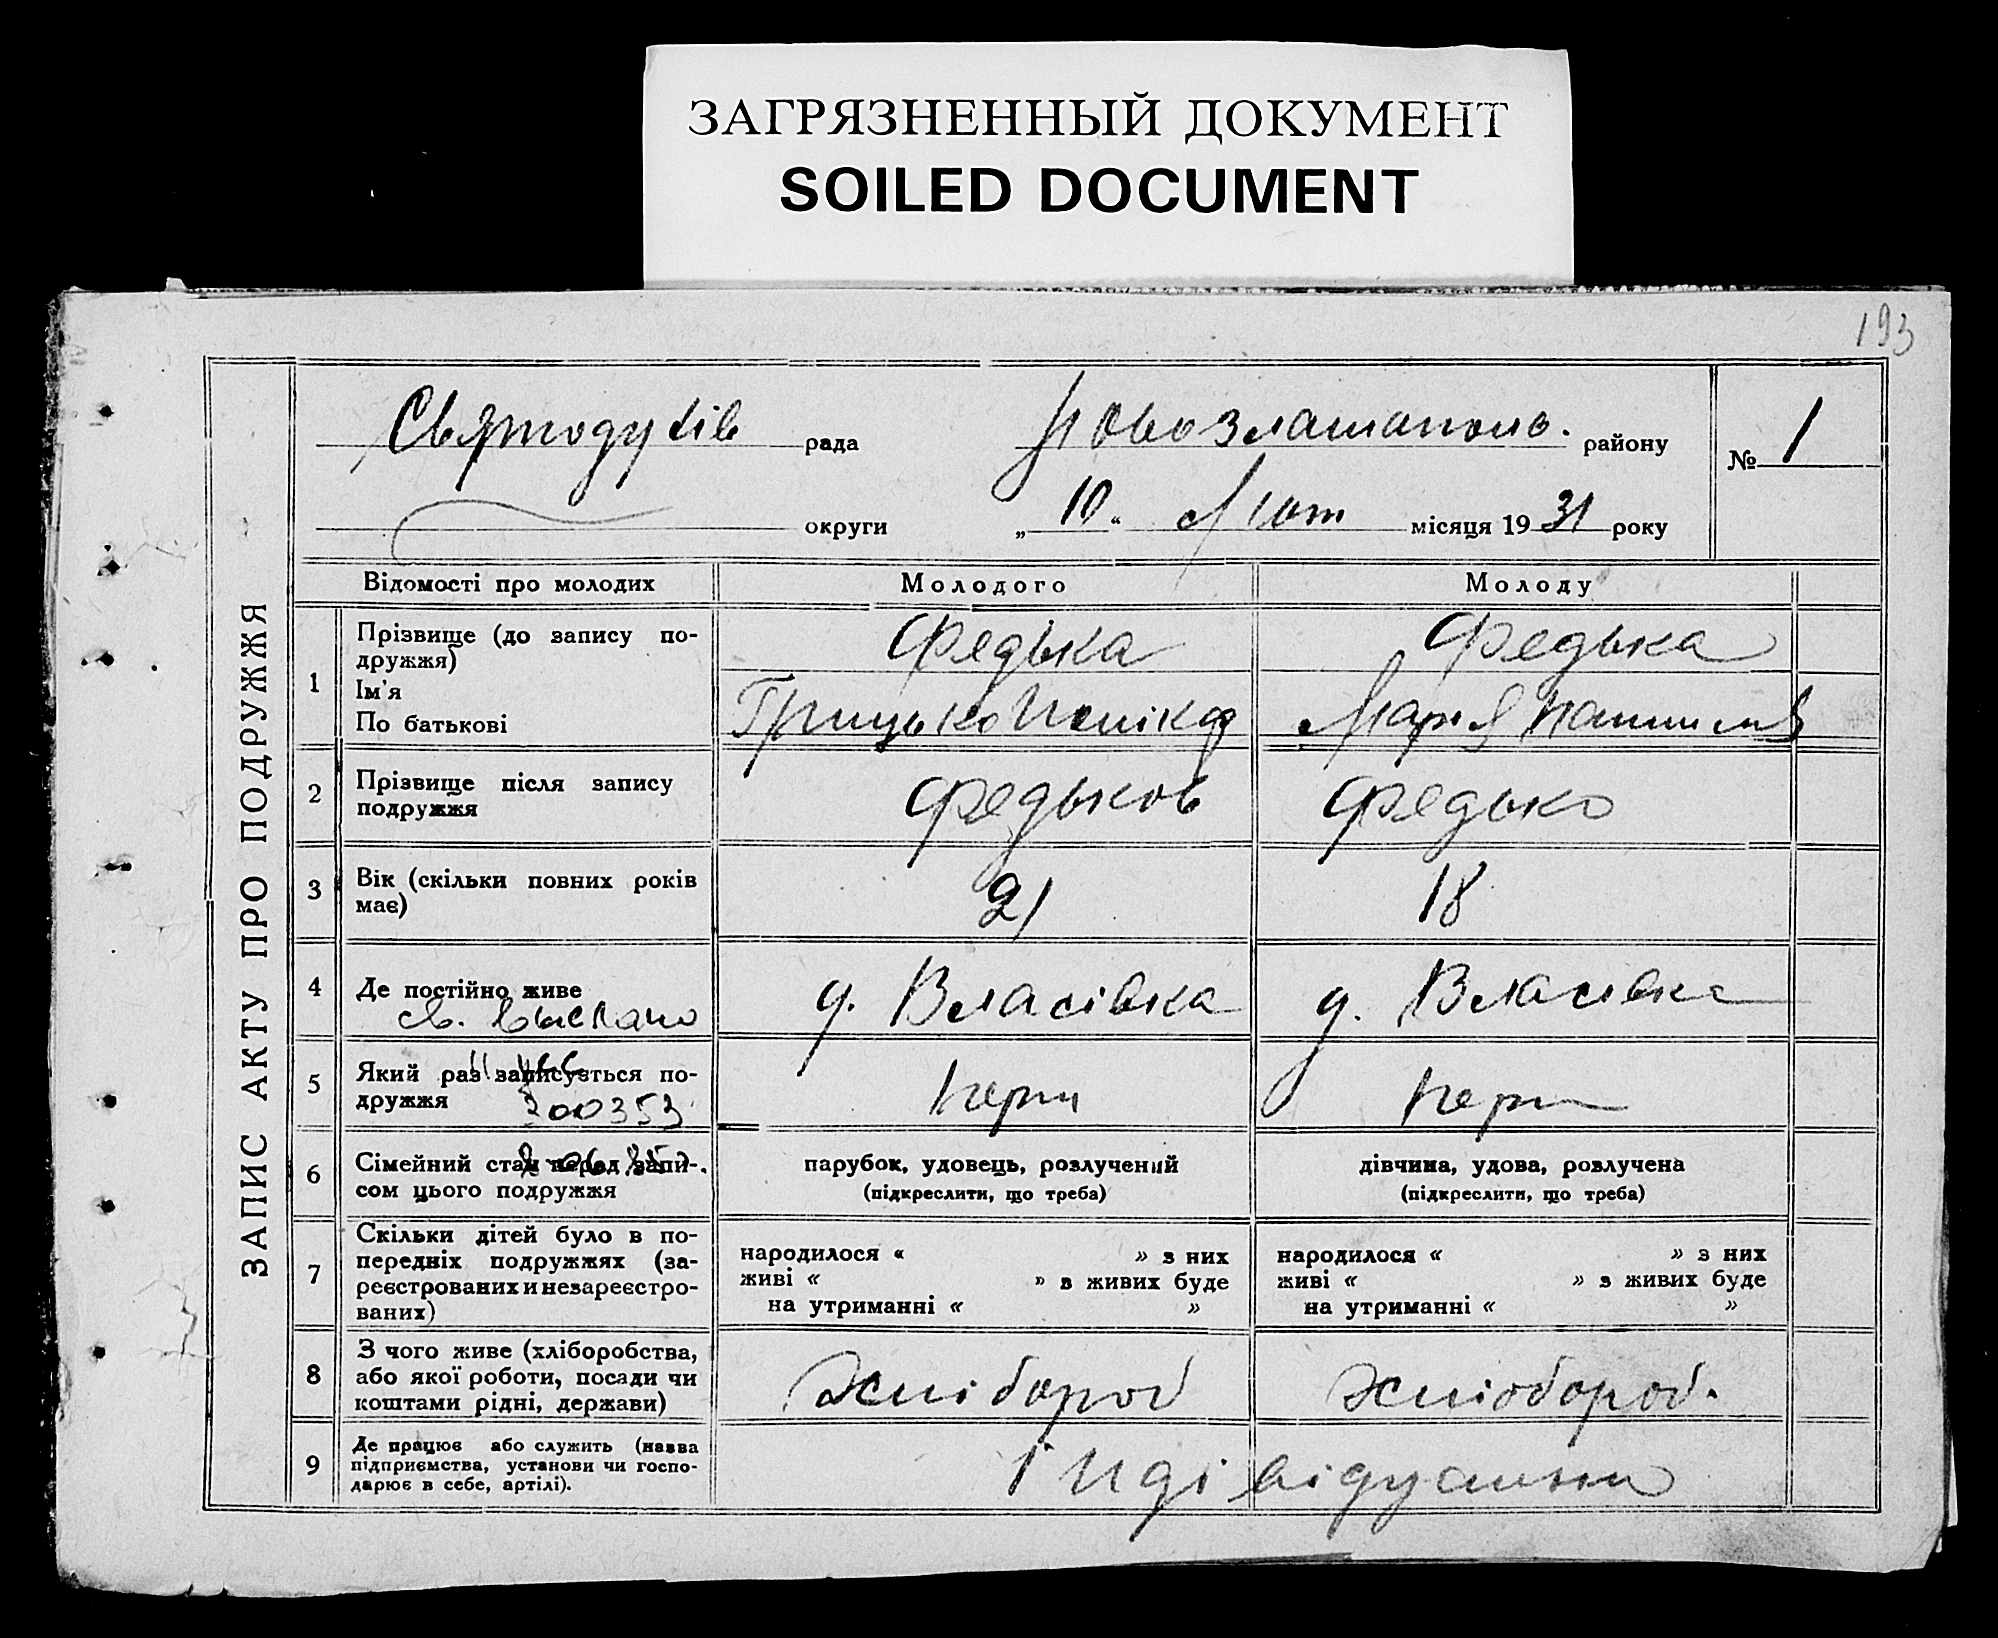 ЗАГРЯЗНЕННЫЙ ДОКУМЕНТ
SOILED DOCUMENT
193
ЗАПИС АКТУ ПРО ПОДРУЖЖЯ
Святодухів рада Новозлатополь. району
№ 1
округи „ 10 “ Лют місяця 19 31 року
Відомості про молодих Молодого Молоду
1 Прізвище (до запису по-
дружжя)
Ім'я
По батькові
Федька Федька
Грицько Марія
2 Прізвище після запису
подружжя
Федьков Федько
3 Вік (скільки повних років
має)
21 18
4 Де постійно живе
св. выслано
д. Власівка д. Власівка
5 Який раз записується по-
дружжя
200353
перш перш
6 Сімейний стан перед запи-
сом цього подружжя
парубок, удовець, розлучений
(підкреслити, що треба)
дівчина, удова, розлучена
(підкреслити, що треба)
7 Скільки дітей було в по-
передніх подружжях (за-
реєстрованих и незареєстро-
ваних)
народилося « » з них
живі « » з живих буде
на утриманні « »
народилося « » з них
живі « » з живих буде
на утриманні « »
8 З чого живе (хліборобства,
або якої роботи, посади чи
коштами рідні, держави)
Хлібороб Хлібороб.
9 Де працює або служить (назва
підприємства, установи чи госпо-
дарює в себе, артілі).
індівідуально